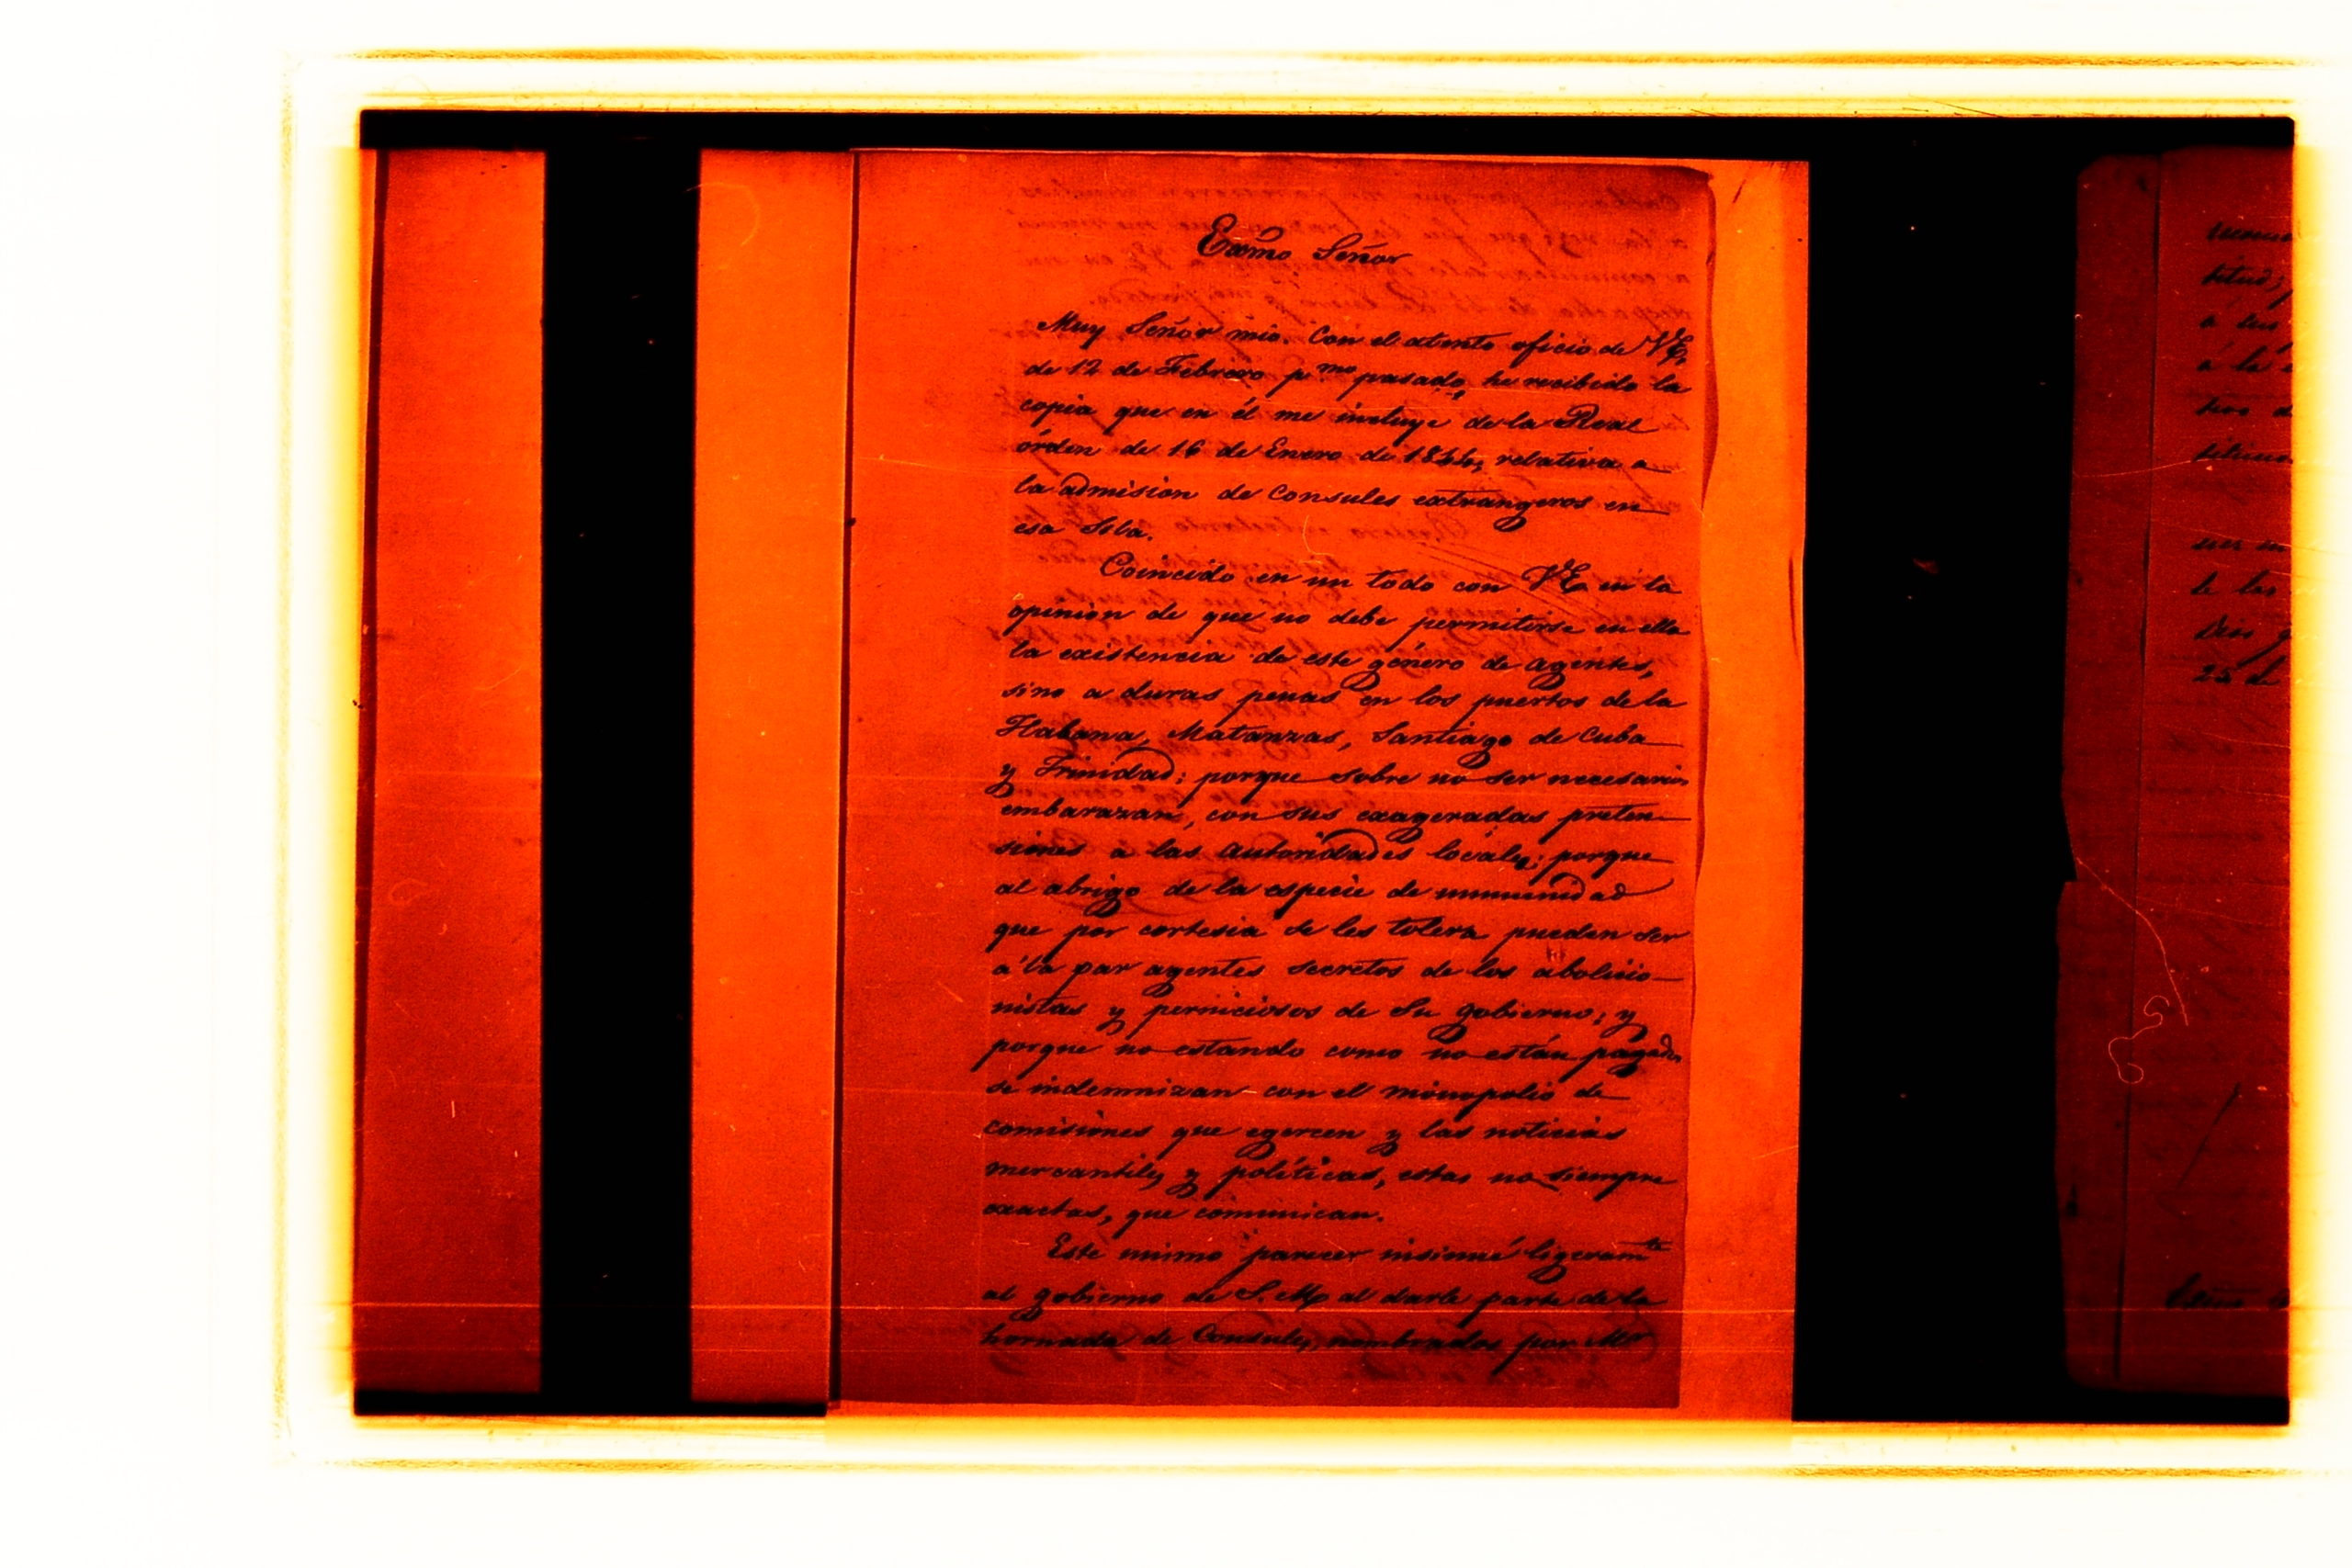 Exmo Señor
Muy Señor mio. Con el atento oficio de VE.
de 12 de Febrero pmo pasado, he recibido la
copia que en él me incluye de la Real
órden de 16 de Enero de 1844, relativa a
la admision de Consules extrangeros en
esa Isla.
Coincido en un todo con VE en la
opinion de que no debe permitirse en ella
la existencia de este género de agentes,
sino a duras penas en los puertos de la
Habana, Matanzas, Santiago de Cuba
y Trinidad: porque sobre no ser necesarios
embarazan, con sus exageradas preten-
siones a las autoridades locales; porque
al abrigo de la especie de inmunidad
que por cortesia se les tolera pueden ser
á la par agentes secretos de los abolicio-
nistas y perniciosos de su gobierno; y
porque no estando como no están pagados
se indemnizan con el monopolio de
comisiones que egercen y las noticias
mercantiles y políticas, estas no siempre
exactas, que comunican.
Este mismo parecer insinué ligeramte
al gobierno de S.M. al darle parte de la
hornada de Consules, nombrados por Mr
á la
25 de